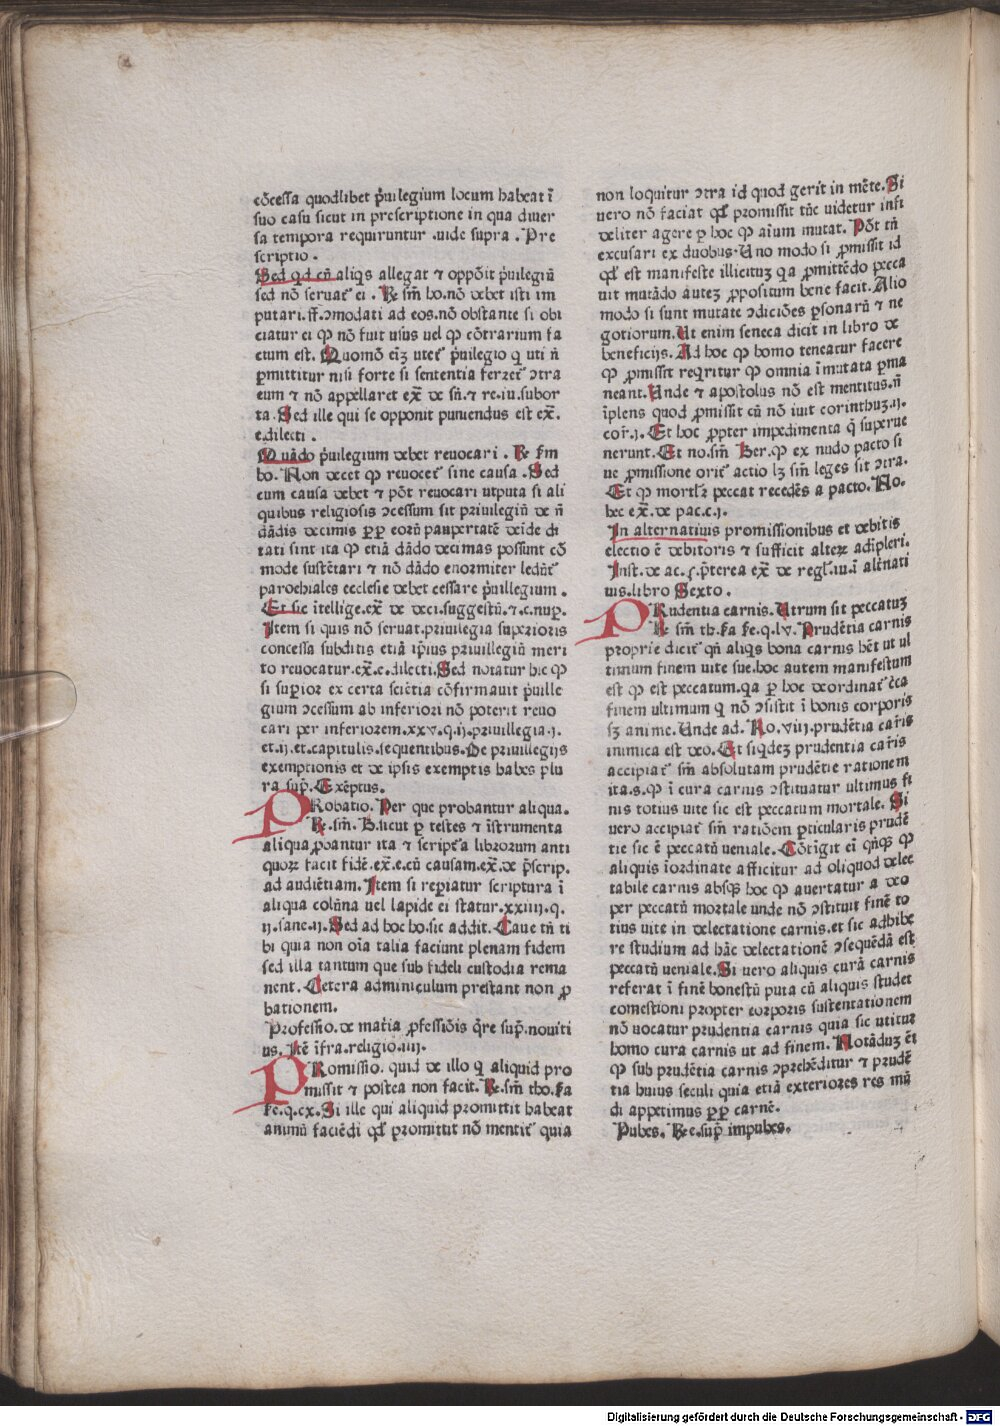 cōcessa quodlibet p̉uilegium locum habeat ī
suo casu sicut in prescriptione in qua diuer
sa tempora requiruntur .uide supra . Pre
scriptio .
Sed qd cū aliqs allegat ⁊ oppōit p̉uilegiū
sed nō seruat᷒ ei . Rͤ sm̄ ho. nō debet isti im
putari. ff. ↄmodati ad eos. nō obstante si obi
ciatur ei ꝙ nō fuit usus uel ꝙ cōtrarium fa
ctum est. Quomō eīꝫ utet᷒ p̉uilegio q uti ñ
ꝑmittitur nisi forte si sententia ferret᷒ ↄtra
eum ⁊ nō appellaret ex̄. de sn̄. ⁊ re. iu. subor
ta. Sed ille qui se opponit puniendus est ex̄.
e. dilecti .
Quādo p̉uilegium debet reuocari . Rͤ sm̄
ho. Non decet ꝙ reuocet᷒ sine causa . Sed
cum causa debet ⁊ pōt reuocari utputa si ali
quibus religiosis ↄcessum sit priuilegiū de ñ
dādis decimis ꝓꝑ eorū paupertatē deīde di
tati sint ita ꝙ etiā dādo decimas possunt cō
mode sustētari ⁊ nō dādo enormiter ledūt᷒
parochiales ecclesie debet cessare p̉uillegium .
Et sic itellige. ex̄. de deci. suggestū. ⁊. c. nuꝑ.
Item si quis nō seruat. priuilegia superioris
concessa subditis etiā ip̄ius priuillegiū meri
to reuocatur. ex̄. e. dilecti. Sed notatur hic ꝙ
si suꝑior ex certa sciētia cōfirmauit p̉uille
gium ↄcessum ab inferiori nō poterit reuo
cari per inferiorem. xxv. q. ij. priuillegia. j.
et. ij. et. capitulis. sequentibus. De priuillegijs
exemptionis et de ipsis exemptis habes plu
ra sup̄. Exēptus.
PRobatio. Per que probantur aliqua.
Rͤ. sm̄. H. sicut ꝑ testes ⁊ īstrumenta
aliqua ꝓbantur ita ⁊ script᷒a librorum anti
quoꝝ facit fidē. ex̄. e. cū causam. ex̄. de p̄scrip.
ad audiētiam. Item si reꝑiatur scriptura ī
aliqua colūna uel lapide ei statur. xxiiij. q.
ij. sane. ij. Sed ad hoc ho. sic addit. Caue tn̄ ti
bi quia non oīa talia faciunt plenam fidem
sed illa tantum que sub fideli custodia rema
nent. Cetera adminiculum prestant non ꝓ
bationem.
Professio. de mat̉ia ꝓfessiōis q̄re sup̄. nouiti
us. Itē īfra. religio. iiij.
PRomissio. quid de illo q̇ aliquid pro
missit ⁊ postea non facit. Rͤ. sm̄ tho. ſa
ſe. q. cx. Si ille qui aliquid promittit habeat
animū faciēdi qd̓ ꝓmittit nō mentit᷒ quia
non loquitur ↄtra id quod gerit in mēte. Si
uero nō faciat qd̓ promissit tūc uidetur infi
deliter agere ꝑ hoc ꝙ aīum mutat. Pōt tn̄
excusari ex duobus. Uno modo si ꝓmissit id
qd̓ est manifeste illicituꝫ qa ꝓmittēdo pecca
uit mutādo auteꝫ ꝓpositum bene facit. Alio
modo si sunt mutate ↄdiciōes ꝑsonarū ⁊ ne
gotiorum. Ut enim seneca dicit in libro de
beneficijs. Ad hoc ꝙ homo teneatur facere
ꝙ ꝓmissit reqritur ꝙ omnia īmutata ꝑma
neant. Unde ⁊ apostolus nō est mentitus. ñ
īplens quod ꝓmissit cū nō iuit corinthuꝫ. ij.
cor̄. j. Et hoc ꝓpter impedimenta q̄ superue
nerunt. Et no. sm̄ Her. ꝙ ex nudo pacto si
ue ꝓmissione orit᷒ actio lꝫ sm̄ leges sit ↄtra.
Et ꝙ mortl̓r peccat recedēs a pacto. No.
hec ex̄. de pac. c. j.
In alternatiuis promissionibus et debitis
electio ē debitoris ⁊ sufficit alteꝝ adīpleri.
Inst. de ac. §. p̄terea ex̄ de regl᷒. iu. ī alt̉nati
uis. libro Sexto .
PRudentia carnis. Utrum sit peccatuꝫ
Rͤ sm̄ th. ſa ſe. q. lv. Prudētia carnis
proprie dicit᷒ qn̄ aliqs bona carnis hēt ut ul
timum finem uite sue. hoc autem manifestum
est ꝙ est peccatum. qa ꝑ hoc deordinat᷒ c̄ca
finem ultimum q nō ↄsistit ī bonis corporis
sꝫ anime. Unde ad. Ro. viij. prudētia carīs
inimica est deo. Et siqdeꝫ prudentia carīs
accipiat᷒ sm̄ absolutam prudētie rationem
ita. s. ꝙ ī cura carnis ↄstituatur ultimus fi
nis totius uite sic est peccatum mortale. Si
uero accipiat᷒ sm̄ ratiōem ꝑticularis prudē
tie sic ē peccatū ueniale. Cōtīgit eī qn̄qꝫ ꝙ
aliquis īordinate afficitur ad oliquod delec
tabile carnis absqꝫ hoc ꝙ auertatur a deo
per peccatū mortale unde nō ↄstituit finē to
tius uite in delectatione carnis. et sic adhibe
re studium ad hāc delectationē ↄsequēdā est
peccatū ueniale. Si uero aliquis curā carnis
referat ī finē honestū puta cū aliquis studet
comestioni propter corporis sustentationem
nō uocatur prudentia carnis quia sic utitur
homo cura carnis ut ad finem. Notāduꝫ ēt
ꝙ sub prudētia carnis ↄprehēditur ⁊ prudē
tia huius seculi quia etiā exteriores res mū
di appetimus ꝓꝑ carnē.
Pubes. Re e. sup̄ impubes.
Digitalisierung gefördert durch die Deutsche Forschungsgemeinschaft - DFG